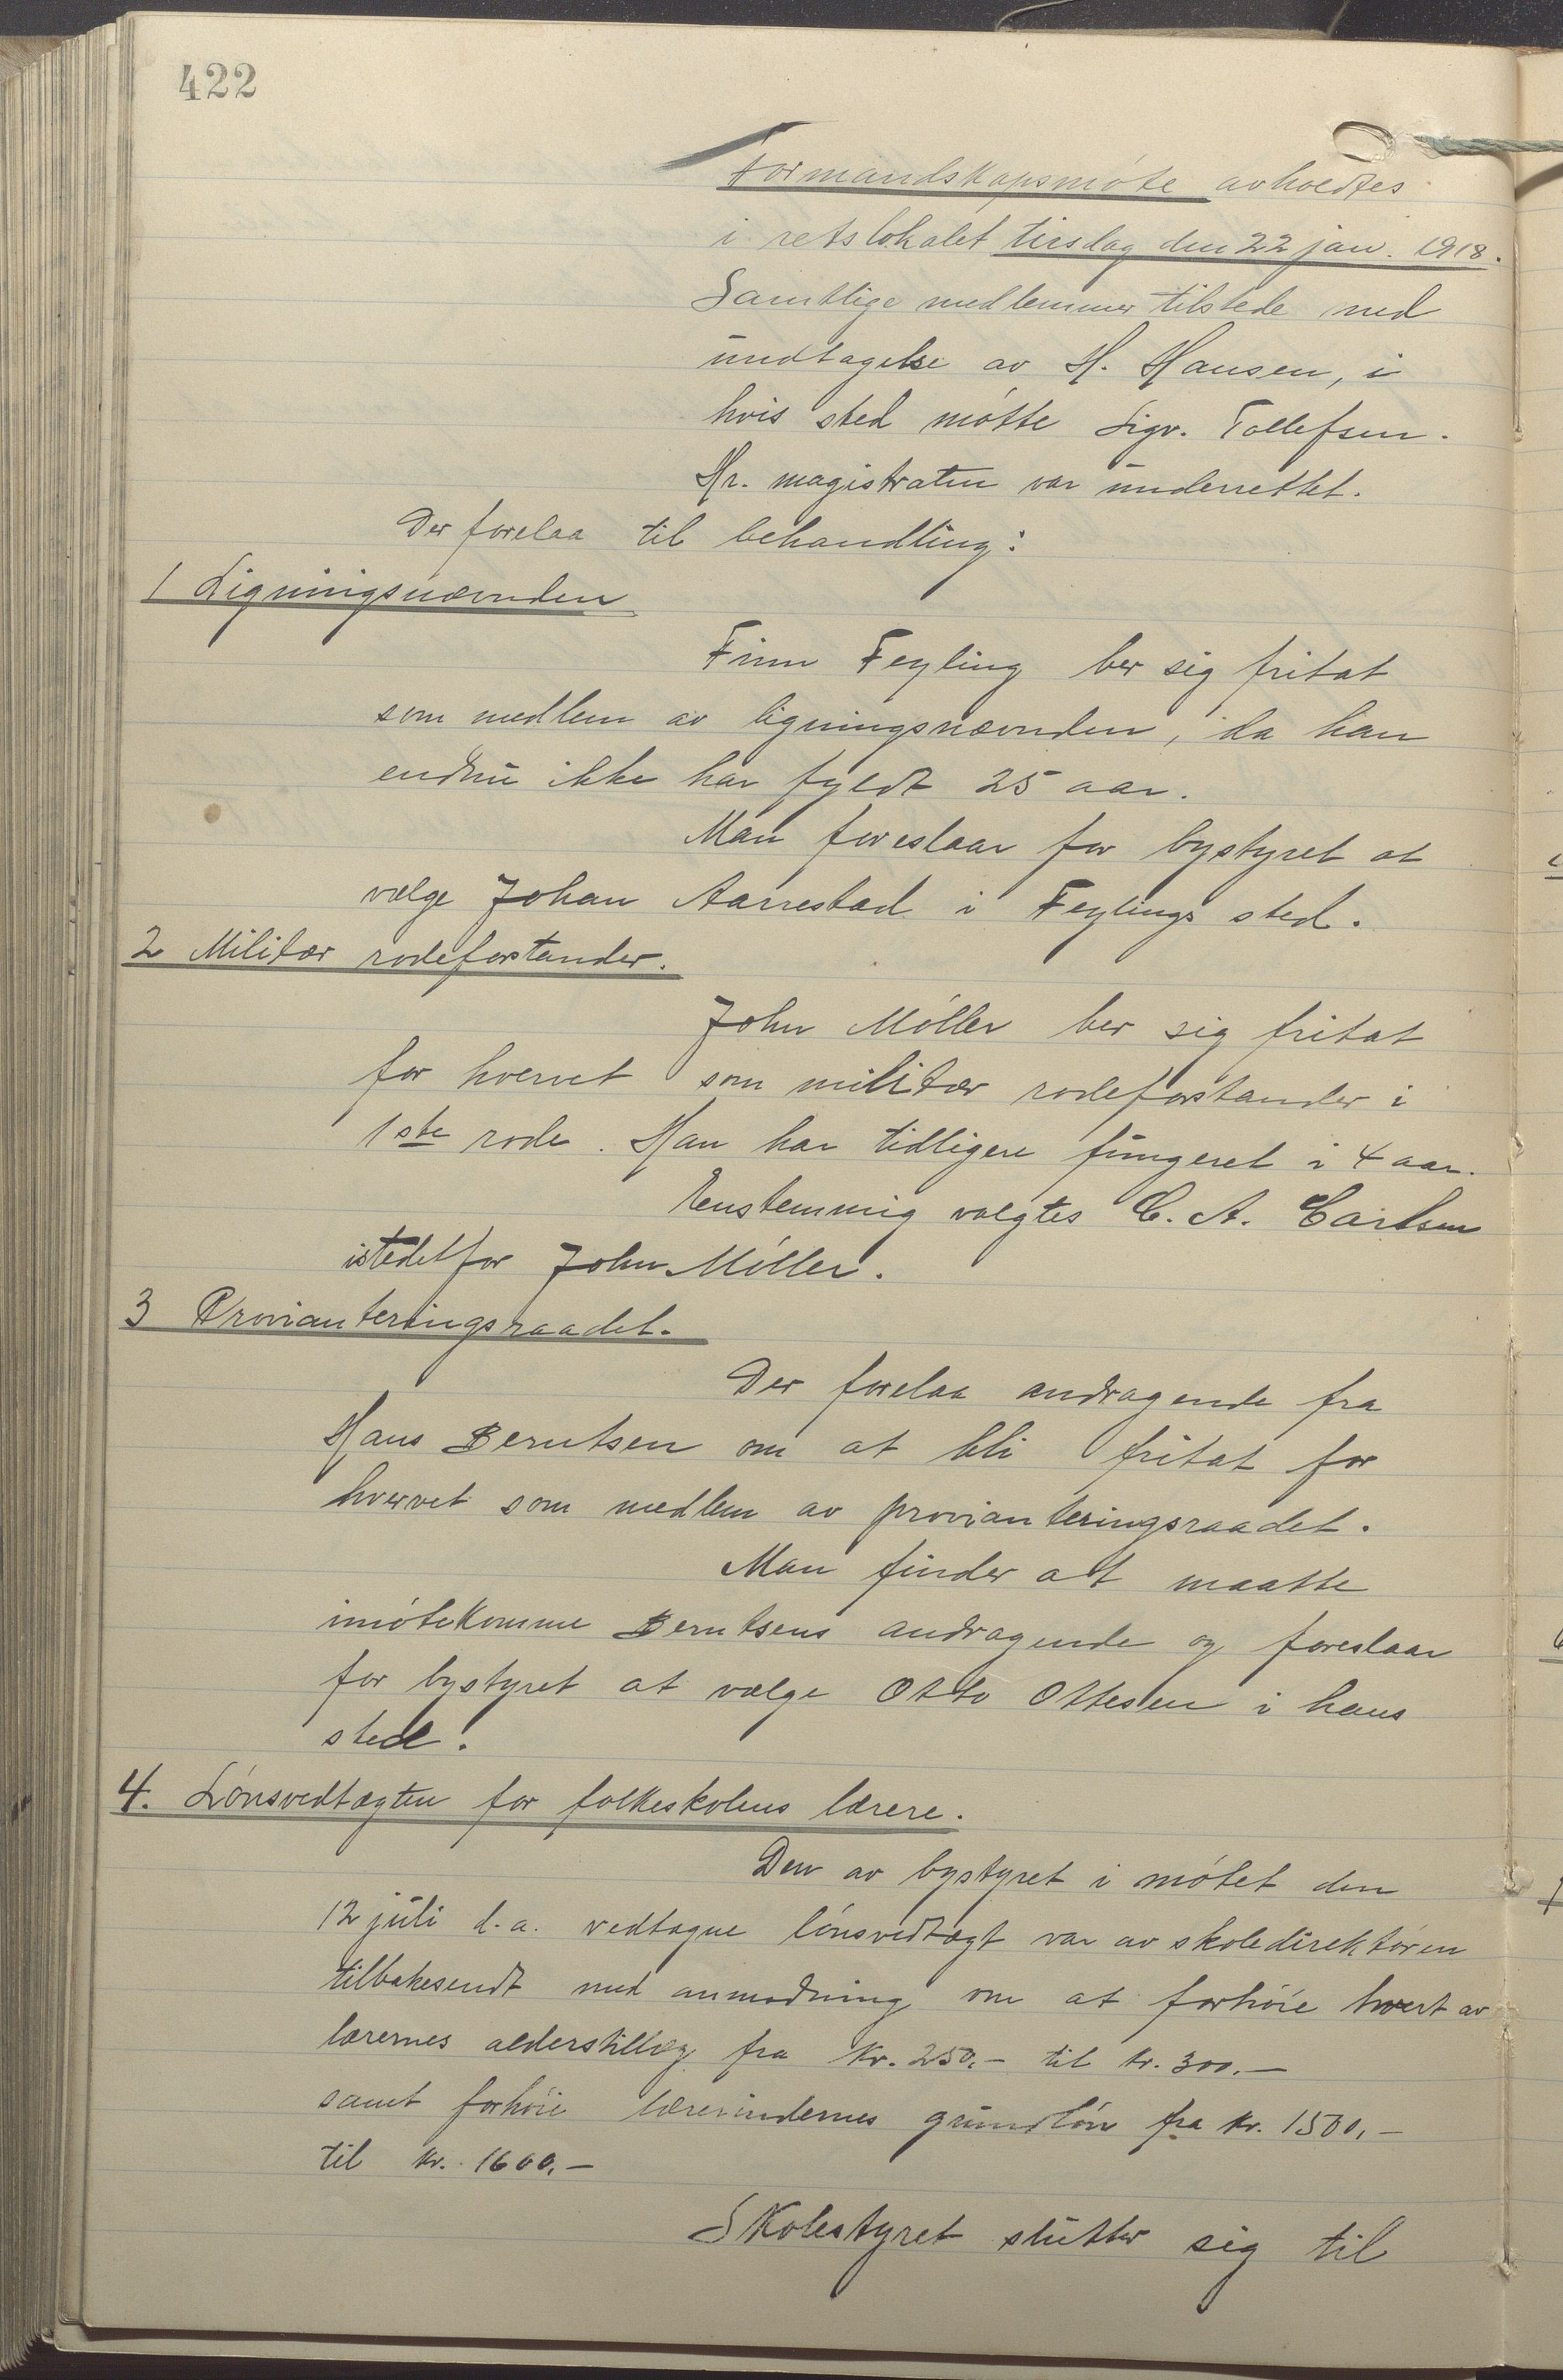 422
Formandskapsmöte avholdtes
i retslokalet tirsdag den 22 jan. 1918.
Samtlige medlemmer tilstede med
undtagelse av H. Hansen, i
hvis sted mötte Sigv. Tollefsen.
Hr. magistraten var underrettet.
Der forelaa til behandling:
1 Ligningsnævnden
Finn Feyling ber sig fritat
som medlem av ligningsnævnden, da han
endnu ikke har fyldt 25 aar.
Man foreslaar for bystyret at
vælge Johan Aarrestad i Feylings sted.
2 Militær rodeforstander.
John Möller ber sig fritat
for hvervet som militær rodeforstander i
1ste rode. Han har tidligere fungeret i 4 aar.
Enstemmig valgtes C. A. Carlsen
istedetfor John Möller.
3 Provianteringsraadet.
Der forelaa andragende fra
Hans Berntsen om at bli fritat for
hvervet som medlem av provianteringsraadet.
Man finder at maatte
imötekomme Berntsens andragende og foreslaar
for bystyret at vælge Otto Ottesen i hans
sted.
4. Lönsvedtægten for folkeskolens lærere.
Den av bystyret i mötet den
12 juli d.a. vedtagne lönsvedtægt var av skoledirektören
tilbakesendt med anmodning om at forhöie hvert av
lærernes alderstillæg fra kr. 250.- til kr. 300.-
samt forhöie lærerindernes grundlön fra kr. 1500,-
til kr. 1600.-
Skolestyret slutter sig til